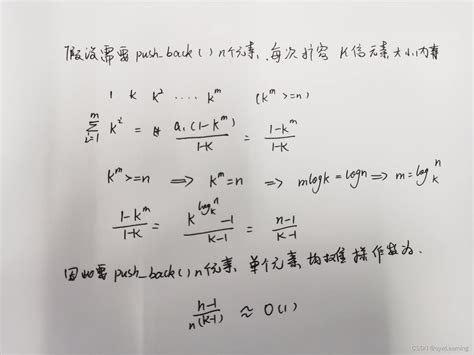 假设需要push_back()n个元素,每次扩容 K倍元素大小内存
1 k k² ···· k^m (k^m >=n)
∑_{i=1}^{m} k^i = a₁(1-k^m)/(1-k) = (1-k^m)/(1-k)
k^m >=n ⇒ k^m = n ⇒ mlogk = logn ⇒ m = log_k^n
(1-k^m)/(1-k) = (k^{log_k^n} -1)/(k-1) = (n-1)/(k-1)
因此需push_back()n个元素,单个元素均摊操作数为.
(n-1)/(n(k-1)) ≈ O(1)
CSDN @oyeLearning